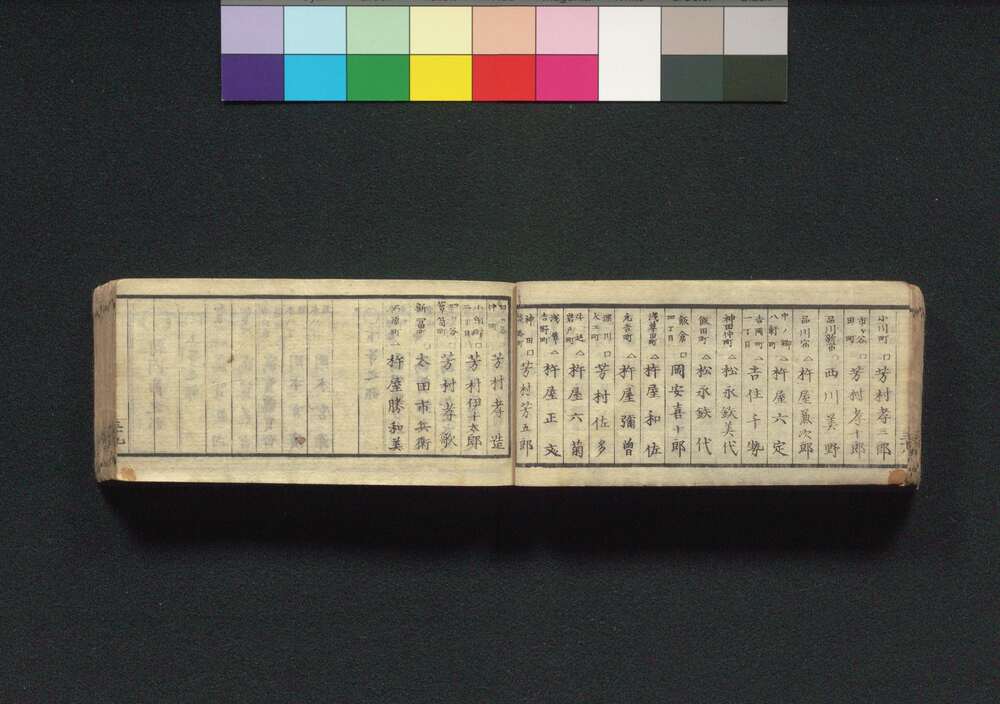 小川町 □ 芳村孝三郎
市ヶ谷田町 □ 芳村孝十郎
品川新宿 西川美野
品川宿 △ 杵屋萬次郎
中ノ郷八軒町 △ 杵屋六定
吉岡町一丁目 △ 吉住千勢
神田仲町 △ 松永鉄美代
飯田町 △ 松永鉄代
飯倉四丁目 □ 岡安喜十郎
浅草田町 △ 杵屋和佐
元吉町 △ 杵屋彌曽
深川大工町 □ 芳村佐多
牛込 △ 杵屋六菊
浅草吉野町 △ 杵屋正文
神田 □ 芳村芳五郎
芳村孝造
□ 芳村伊十太郎
四ッ谷 芳村孝歌
新冨町 太田市兵衛
杵屋勝和美